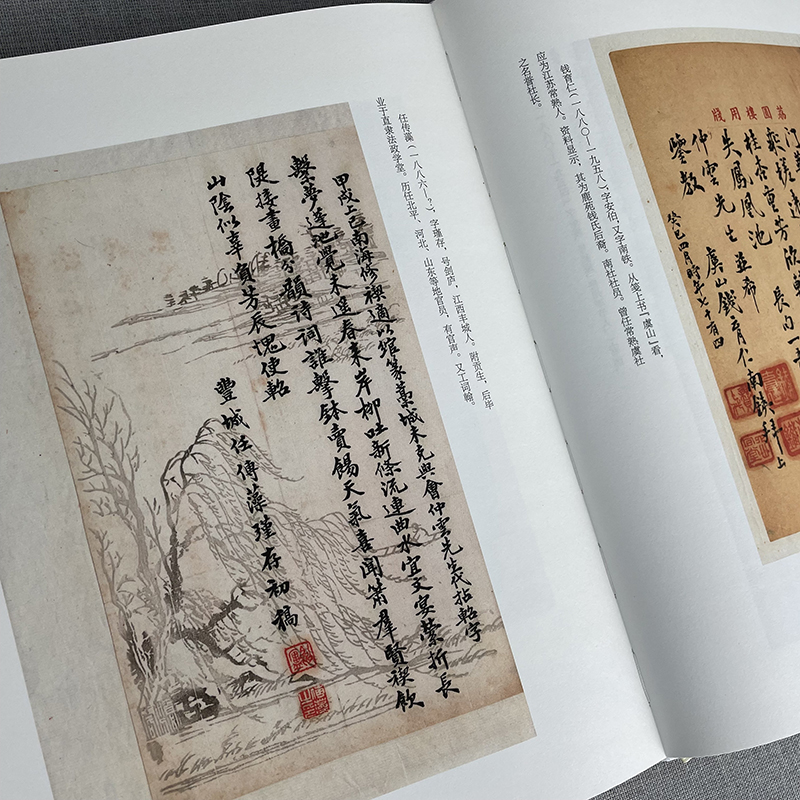 荔園樓用牋
桂杏重芳欣
長句一章
失鳳凰池
仲雲先生並希
鑒教
虞山錢育仁南鐵拜上
癸巳四月時年七十有四
钱育仁(一八八〇—一九五八),字安伯,又字南铁。从笺上书“虞山”看,
应为江苏常熟人。资料显示,其为鹿苑钱氏后裔。南社社员。曾任常熟虞社
之名誉社长。
任传藻(一八八六—?),字瑾存,号剑庐,江西丰城人。附贡生,后毕
业于直隶法政学堂。历任北平、河北、山东等地官员,有官声。又工词翰。
甲戌上巳南海修禊適以館篆藁城未克與會仲雲先生代拈軺字
繫夢蓬池覺未遙春來岸柳吐新條流連曲水宜文宴縈折長
隄接畫橋分韻詩詞誰擊鉢賣餳天氣喜聞簫羣賢禊飲
山陰似辜負芳辰愧使軺
豐城任傳藻瑾存初稿